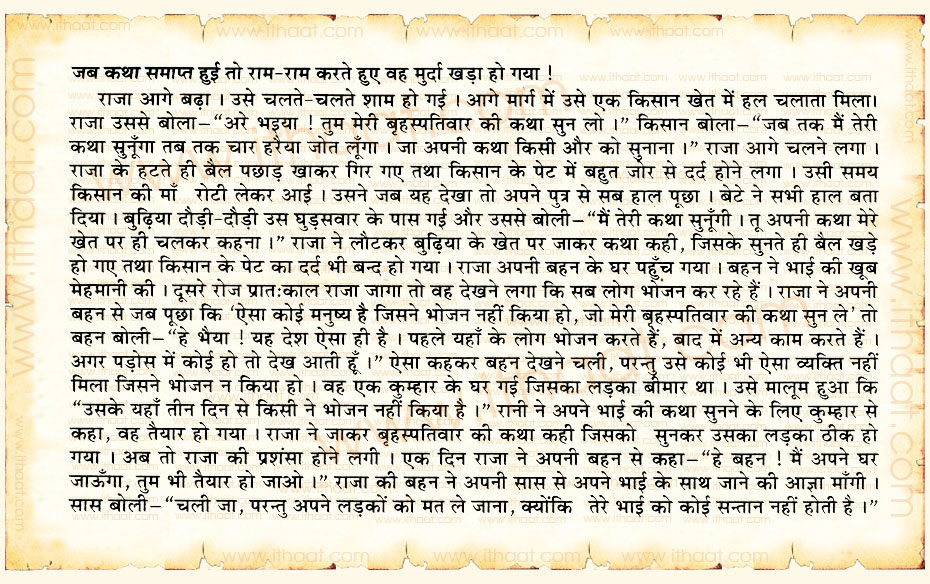 जब कथा समाप्त हुई तो राम-राम करते हुए वह मुर्दा खड़ा हो गया !
राजा आगे बढ़ा । उसे चलते-चलते शाम हो गई । आगे मार्ग में उसे एक किसान खेत में हल चलाता मिला।
राजा उससे बोला–“अरे भइया ! तुम मेरी बृहस्पतिवार की कथा सुन लो ।” किसान बोला–“जब तक मैं तेरी
कथा सुनूँगा तब तक चार हरैया जोत लूँगा । जा अपनी कथा किसी और को सुनाना ।” राजा आगे चलने लगा ।
राजा के हटते ही बैल पछाड़ खाकर गिर गए तथा किसान के पेट में बहुत जोर से दर्द होने लगा । उसी समय
किसान की माँ रोटी लेकर आई । उसने जब यह देखा तो अपने पुत्र से सब हाल पूछा । बेटे ने सभी हाल बता
दिया । बुढ़िया दौड़ी-दौड़ी उस घुड़सवार के पास गई और उससे बोली–“मैं तेरी कथा सुनूँगी । तू अपनी कथा मेरे
खेत पर ही चलकर कहना ।” राजा ने लौटकर बुढ़िया के खेत पर जाकर कथा कही, जिसके सुनते ही बैल खड़े
हो गए तथा किसान के पेट का दर्द भी बन्द हो गया । राजा अपनी बहन के घर पहुँच गया । बहन ने भाई की खूब
मेहमानी की । दूसरे रोज प्रातःकाल राजा जागा तो वह देखने लगा कि सब लोग भोजन कर रहे हैं । राजा ने अपनी
बहन से जब पूछा कि ‘ऐसा कोई मनुष्य है जिसने भोजन नहीं किया हो, जो मेरी बृहस्पतिवार की कथा सुन ले’ तो
बहन बोली–“हे भैया ! यह देश ऐसा ही है । पहले यहाँ के लोग भोजन करते हैं, बाद में अन्य काम करते हैं ।
अगर पड़ोस में कोई हो तो देख आती हूँ ।” ऐसा कहकर बहन देखने चली, परन्तु उसे कोई भी ऐसा व्यक्ति नहीं
मिला जिसने भोजन न किया हो । वह एक कुम्हार के घर गई जिसका लड़का बीमार था । उसे मालूम हुआ कि
“उसके यहाँ तीन दिन से किसी ने भोजन नहीं किया है ।” रानी ने अपने भाई की कथा सुनने के लिए कुम्हार से
कहा, वह तैयार हो गया । राजा ने जाकर बृहस्पतिवार की कथा कही जिसको सुनकर उसका लड़का ठीक हो
गया । अब तो राजा की प्रशंसा होने लगी । एक दिन राजा ने अपनी बहन से कहा–“हे बहन ! मैं अपने घर
जाऊँगा, तुम भी तैयार हो जाओ ।” राजा की बहन ने अपनी सास से अपने भाई के साथ जाने की आज्ञा माँगी ।
सास बोली–“चली जा, परन्तु अपने लड़कों को मत ले जाना, क्योंकि तेरे भाई को कोई सन्तान नहीं होती है ।”
www.ithaat.com